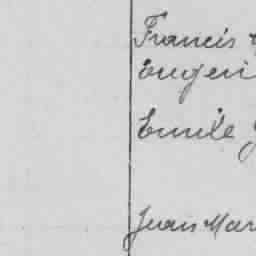 Francis
Eugen
Emile
Jean Mar